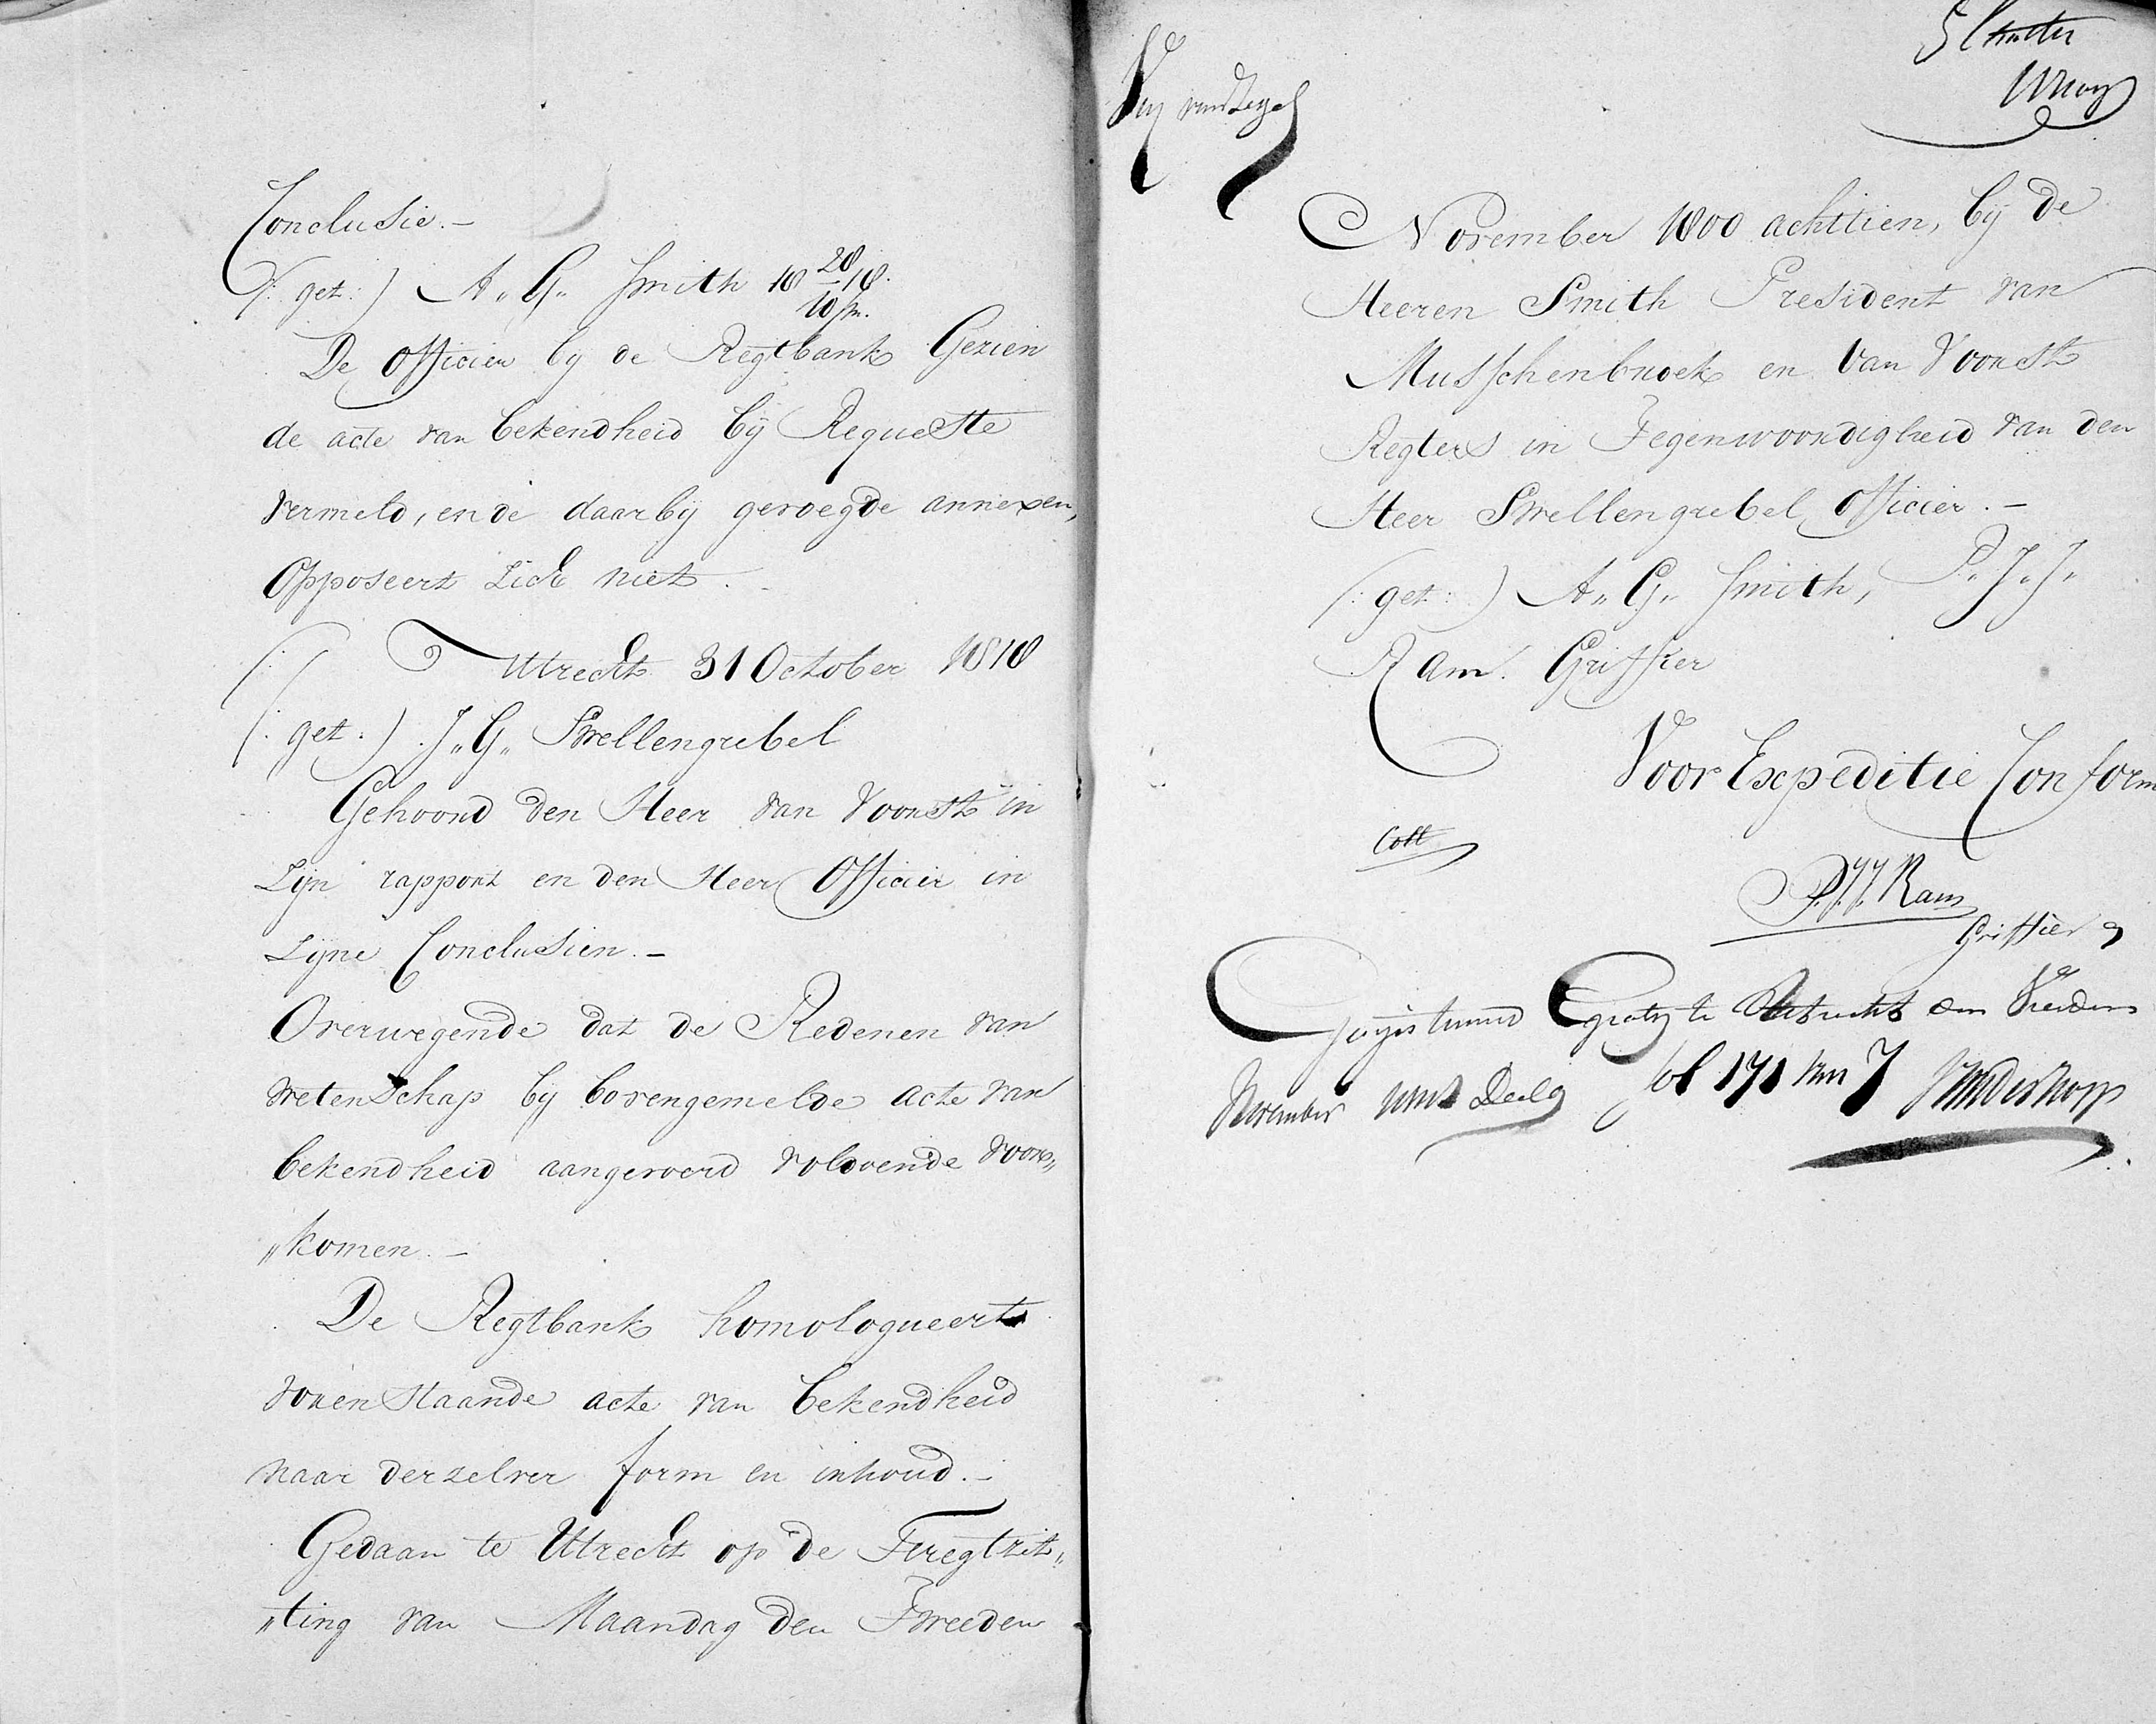 Conclusie. –
(: get :) A„ G„ Smith 18 28/10 br. 18.
De Officier by de Regtbank Gezien
de acte van bekendheid bÿ Requeste
vermeld, en de daarbÿ gevoegde annexen,
Opposeert Zich niet.
Utrecht 31 October 1818
(: get :) J„ G„ Swellengrebel
Gehoord den Heer van Voorst in
Zÿn rapport en den Heer Officier in
Zÿne Conclusien. –
Overwegende dat de Redenen van
wetenschap bÿ bovengemelde acte van
bekendheid aangevoerd voldoende voor„
„komen. –
De Regtbank homologueert
vorenstaande acte van bekendheid
naar derzelver form en inhoud. –
Gedaan te Utrecht op de Teregtzit„
„ting van Maandag den Tweeden
Vry van Zegel
November 1800 achttien, bÿ de
Heeren Smith President van
Musschenbroek en van Voorst
Regters in Tegenwoordigheid van den
Heer Swellengrebel Officier. –
(: get :) A„ G„ Smith, P„ J„ J„
Ram. Griffier
Voor Expeditie Conform
Coll
P. J. J. Ram
Griffier
Geregistreerd Gratis te Utrecht den
November Deel fol 171 7